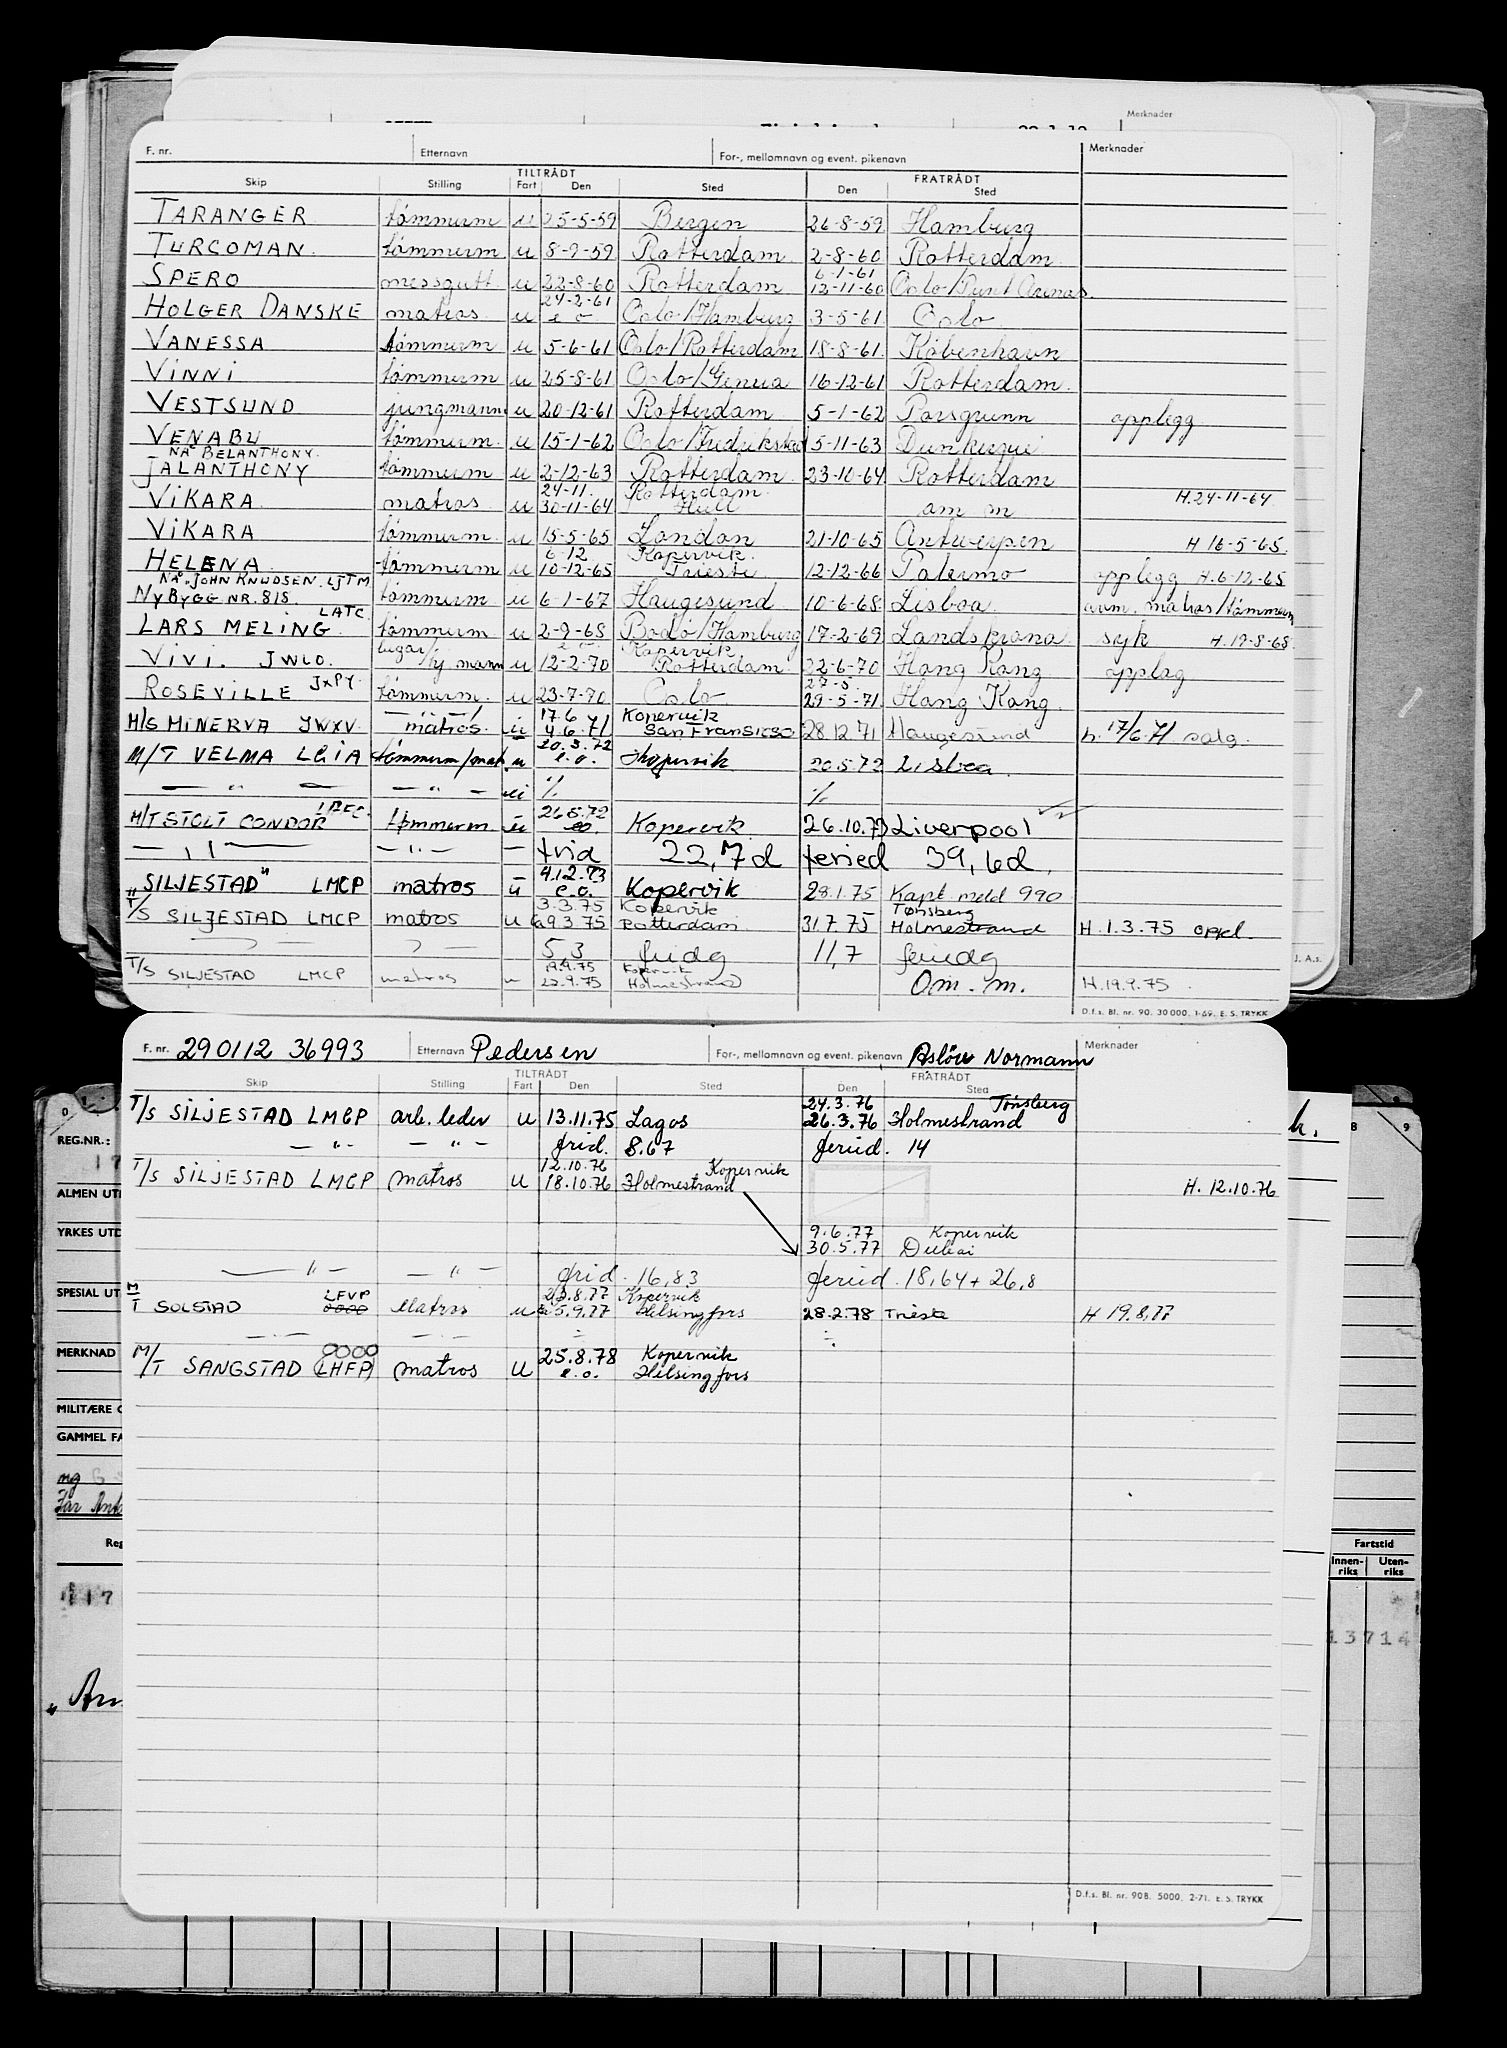 Merknader
F. nr. Etternavn For-, mellomnavn og event. pikenavn Merknader
TILTRÅDT FRATRÅDT
Skip Stilling Fart Den Sted Den Sted
TARANGER tømmerm u 25-5-59 Bergen 26-8-59 Hamburg
TURCOMAN tømmerm u 8-9-59 Rotterdam 2-8-60 Rotterdam
6-1-61
SPERO messgutt u 22-8-60 Rotterdam 12-11-60 Oslo/Punt Arenas
24-2-61
HOLGER DANSKE matros u e o Oslo/Hamburg 3-5-61 Oslo
VANESSA tømmerm u 5-6-61 Oslo/Rotterdam 18-8-61 København
VINNI tømmerm u 25-8-61 Oslo/Genua 16-12-61 Rotterdam
VESTSUND jungmann u 20-12-61 Rotterdam 5-1-62 Porsgrunn opplegg
VENABU tømmerm. u 15-1-62 Oslo/Fredrikstad 5-11-63 Dunkerque
NÅ BELANTHONY.
JALANTHONY tømmerm u 2-12-63 Rotterdam 23-10-64 Rotterdam
24-11. Rotterdam
VIKARA matros u 30-11-64 Hull om m H.24-11-64
VIKARA tømmerm. u 15-5-65 London 21-10-65 Antwerpen H 16-5-65.
6-12 Kopervik.
HELENA tømmerm u 10-12-65 Trieste 12-12-66 Palermo opplegg H.6-12-65
NÅ. JOHN KNUDSEN. LJTM
NYBYGG NR. 818. tømmerm u 6-1-67 Haugesund 10-6-68 Lisboa avm. matros/tømmerm
LATC
LARS MELING tømmerm u 2-9-68 Bodø/Hamburg 17-2-69 Landskrona syk H.19-8-68
lugar/ e o Kopervik
VIVI. JWLO. hj. mann u 12-2-70 Rotterdam 22-6-70 Hong Kong opplag
JXPY. 27-5
ROSEVILLE tømmerm. u 23-7-70 Oslo 29-5-71 Hong Kong
17.6 Kopervik
M/S MINERVA JWXV matros. u 4.6.71 San Fransisco 28.12.71 Haugesund h. 17/6.71 salg.
20.3.72
M/T VELMA LGIA tømmerm/mat. u e.o. Kopervik 20.5.72 Lisboa
— " — — " — u % %
26.8.72
M/T STOLT CONDOR tømmerm u eo. Kopervik 26.10.73 Liverpool
— " — — " — — frid 22,7d feried 39,6d.
4.12.73
"SILJESTAD" LMCP matros u e.o. Kopervik 28.1.75 Kapt meld 990
3.3.75 Kopervik Tønsberg
T/S SILJESTAD LMCP matros u 9.3.75 Rotterdam 31.7.75 Holmestrand H.1.3.75 oppd.
5,3 fridg 11,7 feriedg
19.9.75 Kopervik
T/S SILJESTAD LMCP matros u 22.9.75 Holmestrand Om. m. H.19.9.75
D.f.s. Bl. nr. 90. 30 000. 1-69. E. S. TRYKK
J. A.s.
F. nr. 290112 36993 Etternavn Pedersen For-, mellomnavn og event. pikenavn Normann Merknader
TILTRÅDT FRATRÅDT
Skip Stilling Fart Den Sted Den Sted
24.3.76 Tønsberg
T/S SILJESTAD LMCP arb. leder u 13.11.75 Lagos 26.3.76 Holmestrand
— " — — " — frid. 8.67 feried. 14
12.10.76 Kopervik
T/S SILJESTAD LMCP matros u 18.10.76 Holmestrand H. 12.10.76
9.6.77 Kopervik
30.5.77 Dubai
— " — — " — frid. 16,83 feried. 18,64 + 26,8
LFVP 23.8.77 Kopervik
M/T SOLSTAD matros u 5.9.77 Helsingfors 28.2.78 Trieste H 19.8.77
M/T SANGSTAD LHFP matros u 25.8.78 Kopervik
e.o. Helsingfors
D.f.s. Bl. nr. 90B. 5000. 2-71. E. S. TRYKK
REG.NR.:
ALMEN UT
YRKES UTD
SPESIAL UT
MERKNAD
MILITÆRE
GAMMEL FA
Reg
Fartstid
Innen-riks Uten-riks
13714